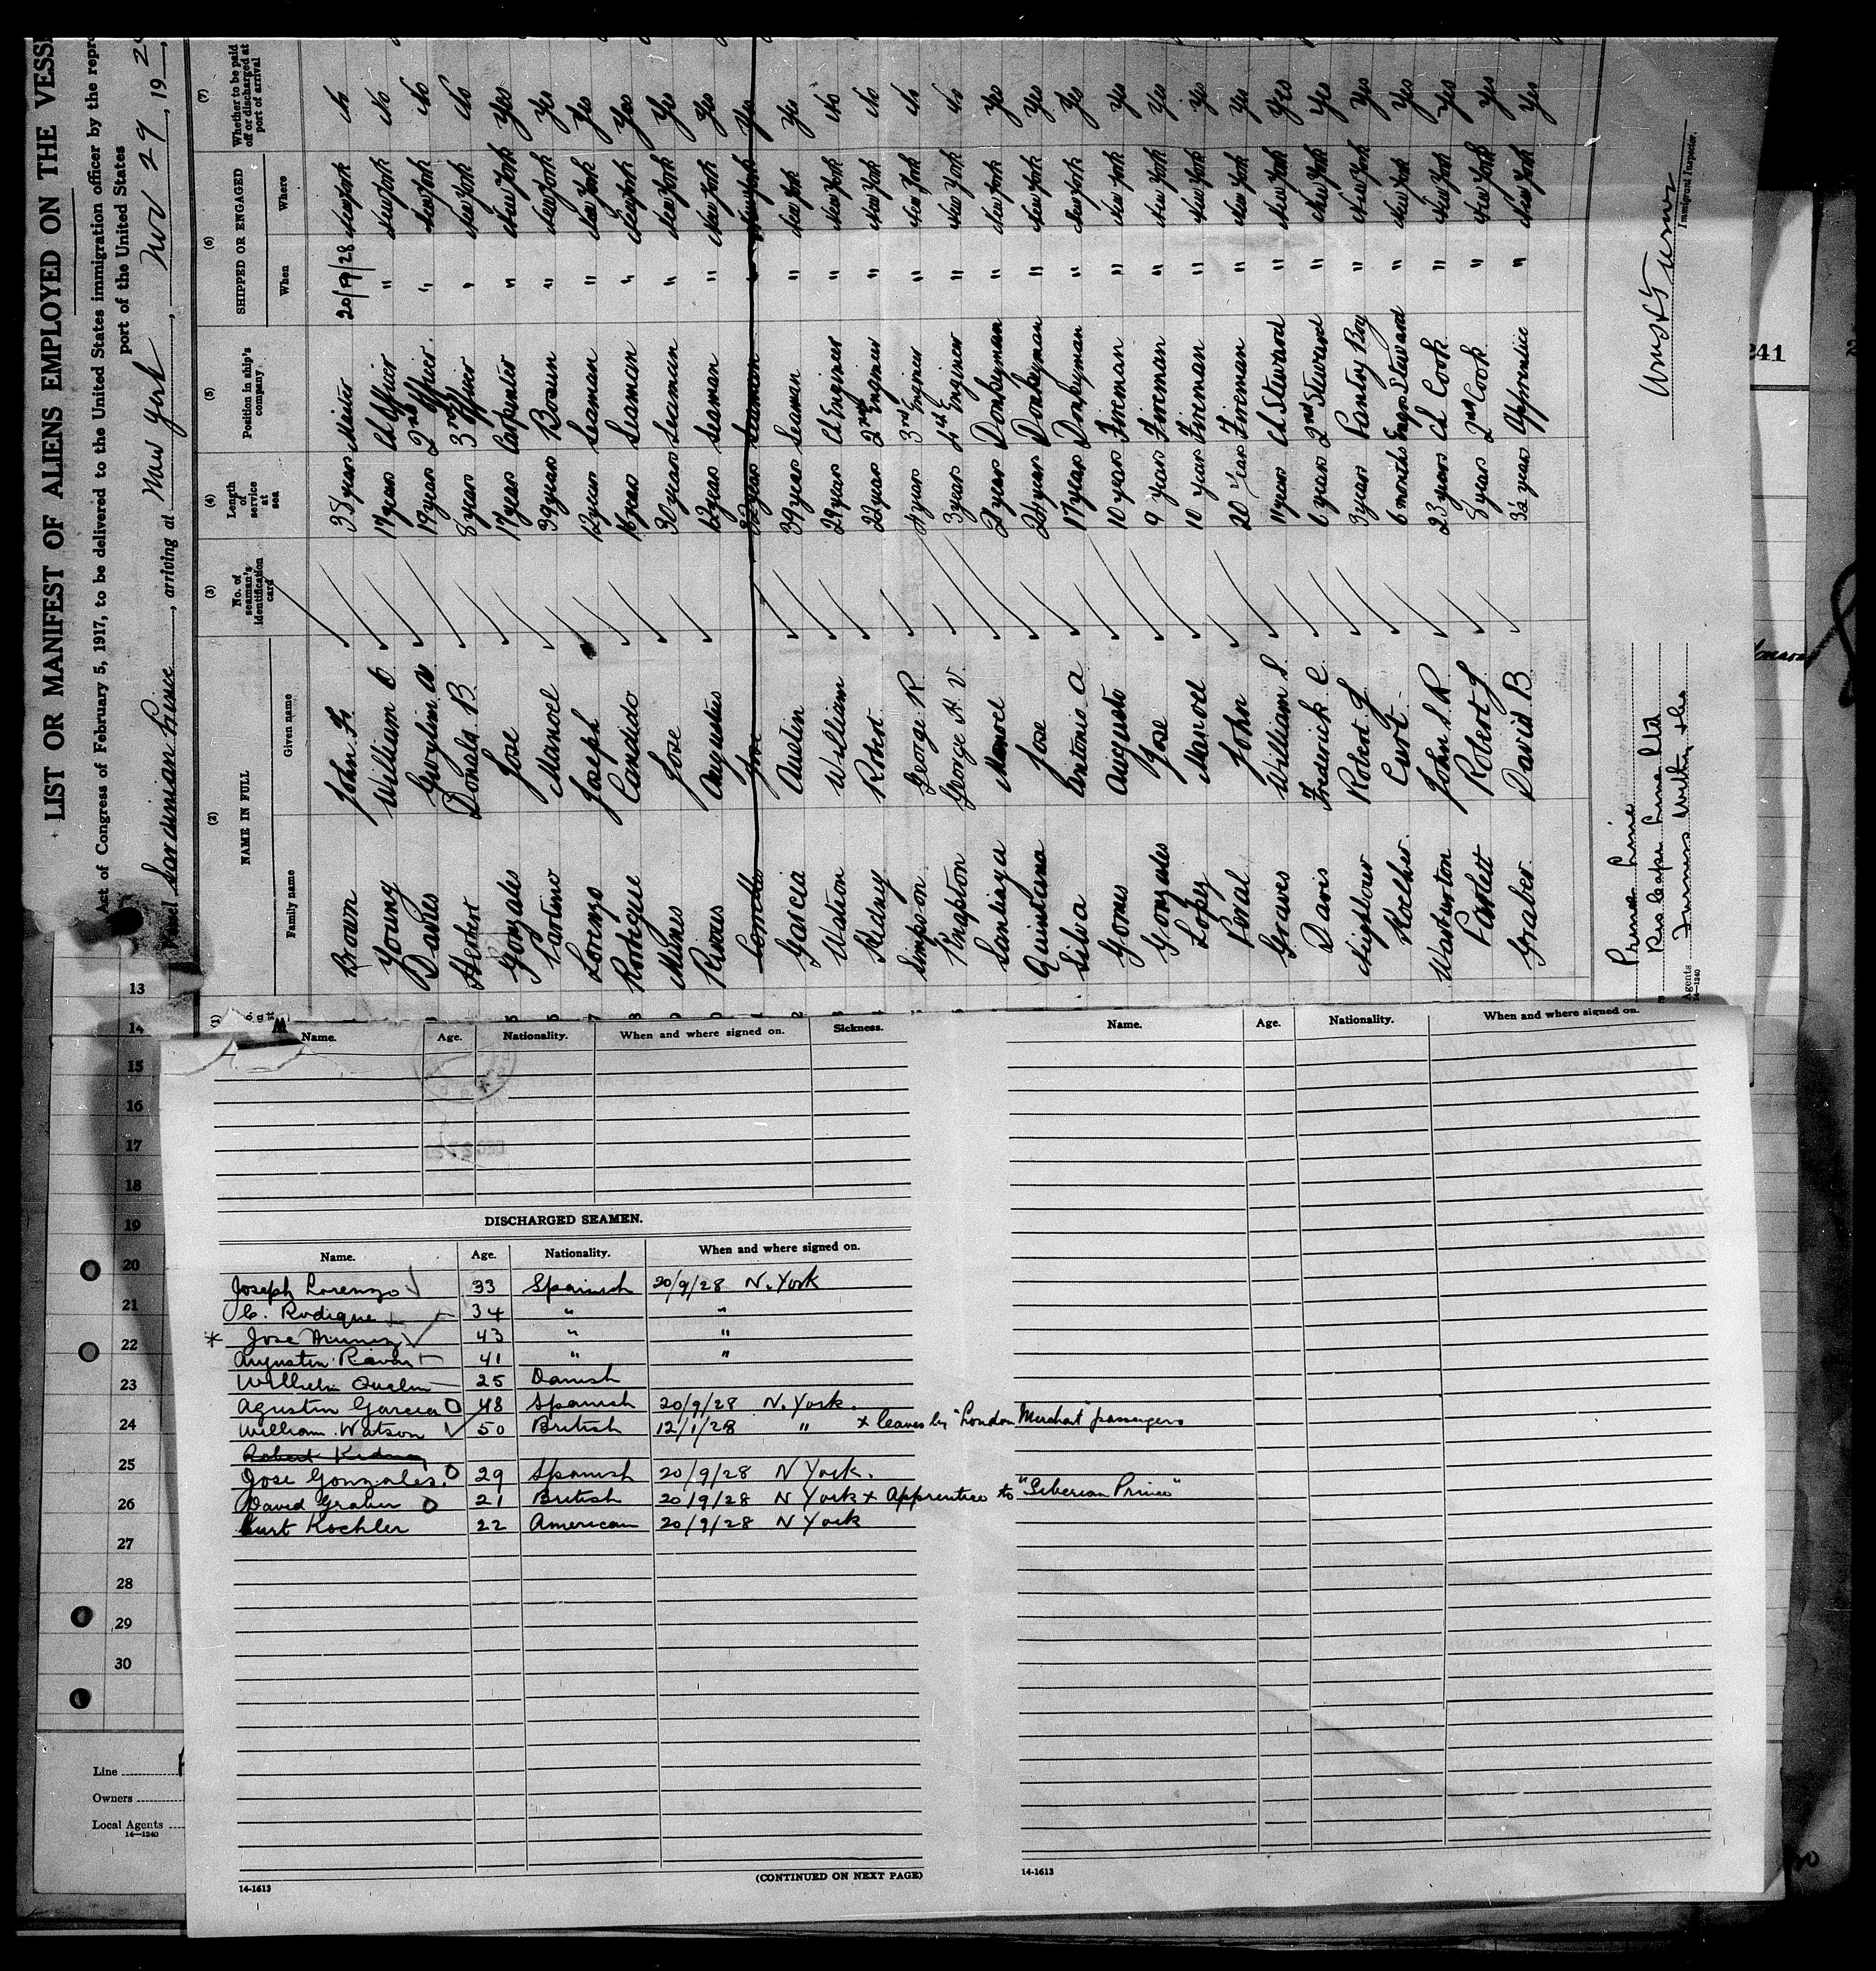 LIST OR MANIFEST OF ALIENS EMPLOYED ON THE VESS
Act of Congress of February 5, 1917, to be delivered to the United States immigration officer by the repr
port of the United States
Vessel Sardinian Prince, arriving at New York, Nov 29, 192
(1) (2) (3) (4) (5) (6) (7)
NAME IN FULL
Family name Given name
No. of seaman's identification card
Length of service at sea
Position in ship's company
SHIPPED OR ENGAGED
When Where
Whether to be paid off or discharged at port of arrival
Brown John 35 years Master 20/9/28 New York No
Young William 17 years Ch Officer " New York No
Davies Gwylim W 19 years 2nd Officer " New York No
Herbert Donald B 8 years 3rd Officer " New York No
Gonzales Jose 17 years Carpenter " New York Yes
Partino Manoel 39 years Bosun " New York Yes
Lorenzo Joseph 12 years Seaman " New York Yes
Rodeque Candido 16 years Seaman " New York Yes
Munes Jose 30 years Seaman " New York Yes
Rivas Augustus 12 years Seaman " New York Yes
Jose years Seaman " New York Yes
Garcia Austin 34 years Seaman " New York Yes
Watson William 29 years Ch Engineer " New York No
Kedney Robert 22 years 2nd Engineer " New York No
Simpson George R 4 years 3rd Engineer " New York No
Knapton George H V. 3 years 4th Engineer " New York No
Santinga Manoel 21 years Donkeyman " New York Yes
Quintana Jose 24 years Donkeyman " New York Yes
Silva Antonio A 17 years Donkeyman " New York Yes
Gomes Augusto 10 years Fireman " New York Yes
Gonzales Jose 9 years Fireman " New York Yes
Lopez Manoel 10 years Fireman " New York Yes
Peral John 20 years Fireman " New York Yes
Graves William S. 11 years Ch Steward " New York Yes
Davis Frederick C. 6 years 2nd Steward " New York Yes
Nighbour Robert J 3 years Pantry Boy " New York Yes
Koelher Curt 6 months Engrs Steward " New York Yes
Warburton John S R. 23 years Ch Cook " New York Yes
Partlett Robert J 8 years 2nd Cook " New York Yes
Graber David B 3½ years Apprentice " New York Yes
Prince Line
Prince Line Ltd
Agents Furness Withy & Co
14—1240
Immigrant Inspector.
241
13
14
15
16
17
18
19
20
21
22
23
24
25
26
27
28
29
30
Line
Owners
Local Agents
14—1240
Name. Age. Nationality. When and where signed on. Sickness.
DISCHARGED SEAMEN.
Name. Age. Nationality. When and where signed on.
Joseph Lorenzo 33 Spanish 20/9/28 N. York
C. Rodique 34 " "
* Jose Munez 43 " "
Augustin Rivas 41 " "
Wilhelm Qualm 25 Danish
Agustin Garcia O 48 Spanish 20/9/28 N. York.
William Watson 50 British 12/1/28 " x leaves by "London Merchant" passengers
Robert Kidney
Jose Gonzales. O 29 Spanish 20/9/28 N York.
David Graber O 21 British 20/9/28 N York x Apprentice to "Siberian Prince"
Curt Kochler 22 American 20/9/28 N York
(CONTINUED ON NEXT PAGE)
14-1613
Name. Age. Nationality. When and where signed on.
14-1613